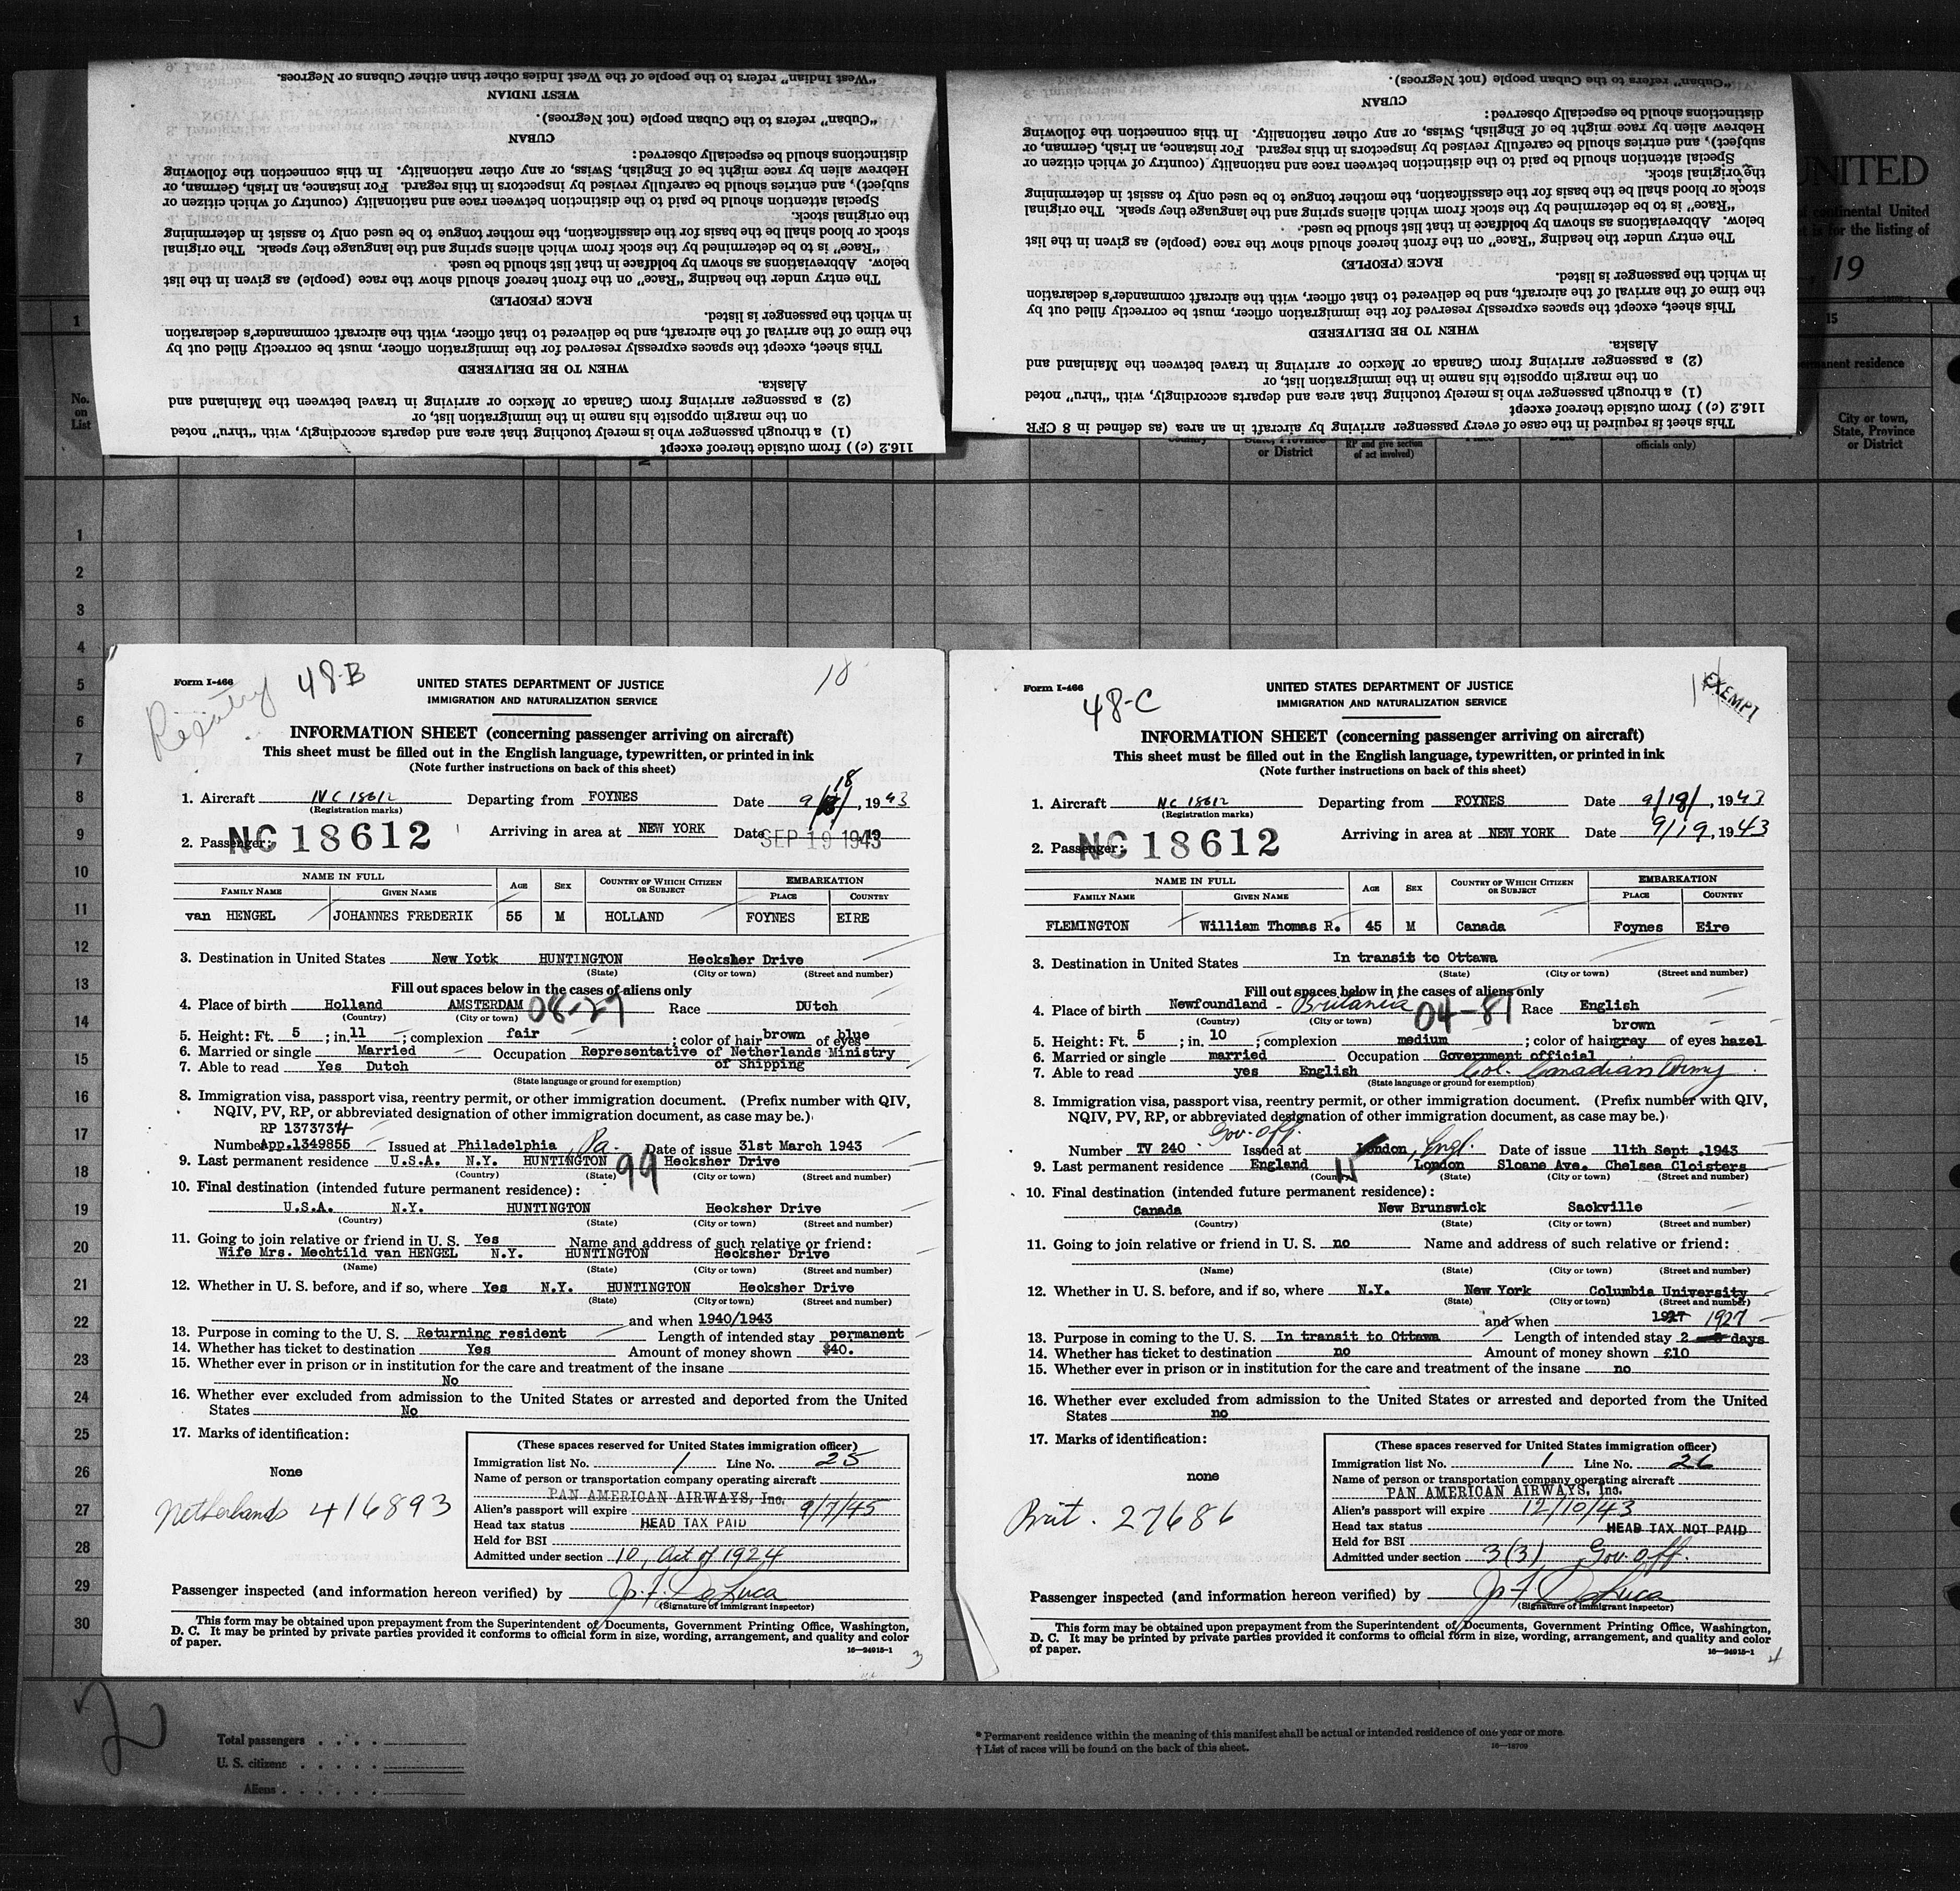 "West Indian" refers to the people of the West Indies other than either Cubans or Negroes.
WEST INDIAN
"Cuban" refers to the Cuban people (not Negroes).
CUBAN
distinctions should be especially observed:
Hebrew alien by race might be of English, Swiss, or any other nationality. In this connection the following
subject), and entries should be carefully revised by inspectors in this regard. For instance, an Irish, German, or
Special attention should be paid to the distinction between race and nationality (country of which citizen or
the original stock.
stock or blood shall be the basis for the classification, the mother tongue to be used only to assist in determining
"Race" is to be determined by the stock from which aliens spring and the language they speak. The original
below. Abbreviations as shown by boldface in that list should be used.
The entry under the heading "Race" on the front hereof should show the race (people) as given in the list
RACE (PEOPLE)
in which the passenger is listed.
the time of the arrival of the aircraft, and be delivered to that officer, with the aircraft commander's declaration
This sheet, except the spaces expressly reserved for the immigration officer, must be correctly filled out by
WHEN TO BE DELIVERED
Alaska.
(2) a passenger arriving from Canada or Mexico or arriving in travel between the Mainland and
on the margin opposite his name in the immigration list, or
(1) a through passenger who is merely touching that area and departs accordingly, with "thru" noted
116.2 (c)) from outside thereof except
"Cuban" refers to the Cuban people (not Negroes).
CUBAN
distinctions should be especially observed:
Hebrew alien by race might be of English, Swiss, or any other nationality. In this connection the following
subject), and entries should be carefully revised by inspectors in this regard. For instance, an Irish, German, or
Special attention should be paid to the distinction between race and nationality (country of which citizen or
the original stock.
stock or blood shall be the basis for the classification, the mother tongue to be used only to assist in determining
"Race" is to be determined by the stock from which aliens spring and the language they speak. The original
below. Abbreviations as shown by boldface in that list should be used.
The entry under the heading "Race" on the front hereof should show the race (people) as given in the list
RACE (PEOPLE)
in which the passenger is listed.
the time of the arrival of the aircraft, and be delivered to that officer, with the aircraft commander's declaration
This sheet, except the spaces expressly reserved for the immigration officer, must be correctly filled out by
WHEN TO BE DELIVERED
Alaska.
(2) a passenger arriving from Canada or Mexico or arriving in travel between the Mainland and
on the margin opposite his name in the immigration list, or
(1) a through passenger who is merely touching that area and departs accordingly, with "thru" noted
116.2 (c)) from outside thereof except
This sheet is required in the case of every passenger arriving by aircraft in an area (as defined in 8 CFR
UNITED
continental United
is for the listing of
, 19
1
15
permanent residence
No.
on
List
State, Province
or District
RP and give section
of act involved)
officials only)
City or town,
State, Province
or District
1
2
3
4
5
6
7
8
9
10
11
12
13
14
15
16
17
18
19
20
21
22
23
24
25
26
27
28
29
30
Form I-466
48-B
10
UNITED STATES DEPARTMENT OF JUSTICE
IMMIGRATION AND NATURALIZATION SERVICE
INFORMATION SHEET (concerning passenger arriving on aircraft)
This sheet must be filled out in the English language, typewritten, or printed in ink
(Note further instructions on back of this sheet)
1. Aircraft NC 18612 Departing from FOYNES Date 9/18/, 1943
(Registration marks)
NC 18612 Arriving in area at NEW YORK Date SEP 19 1943
2. Passenger:
NAME IN FULL AGE SEX COUNTRY OF WHICH CITIZEN OR SUBJECT EMBARKATION
FAMILY NAME GIVEN NAME PLACE COUNTRY
van HENGEL JOHANNES FREDERIK 55 M HOLLAND FOYNES EIRE
3. Destination in United States New Yotk HUNTINGTON Hecksher Drive
(State) (City or town) (Street and number)
Fill out spaces below in the cases of aliens only
4. Place of birth Holland AMSTERDAM 08-27 Race DUtch
(Country) (City or town)
5. Height: Ft. 5 ; in. 11 ; complexion fair ; color of hair brown of eyes blue
6. Married or single Married Occupation Representative of Netherlands Ministry
of Shipping
7. Able to read Yes Dutch
(State language or ground for exemption)
8. Immigration visa, passport visa, reentry permit, or other immigration document. (Prefix number with QIV,
NQIV, PV, RP, or abbreviated designation of other immigration document, as case may be.)
RP 1373734
Number App.1349855 Issued at Philadelphia, Pa. Date of issue 31st March 1943
9. Last permanent residence U.S.A. N.Y. HUNTINGTON 99 Hecksher Drive
(Country) (State) (City or town) (Street and number)
10. Final destination (intended future permanent residence):
U.S.A. N.Y. HUNTINGTON Hecksher Drive
(Country) (State) (City or town) (Street and number)
11. Going to join relative or friend in U. S. Yes Name and address of such relative or friend:
Wife Mrs. Mechtild van HENGEL N.Y. HUNTINGTON Hecksher Drive
(Name) (State) (City or town) (Street and number)
12. Whether in U. S. before, and if so, where Yes N.Y. HUNTINGTON Hecksher Drive
(State) (City or town) (Street and number)
and when 1940/1943
13. Purpose in coming to the U. S. Returning resident Length of intended stay permanent
14. Whether has ticket to destination Yes Amount of money shown $40.
15. Whether ever in prison or in institution for the care and treatment of the insane
No
16. Whether ever excluded from admission to the United States or arrested and deported from the United
States No
17. Marks of identification:
None
Netherlands 416893
(These spaces reserved for United States immigration officer)
Immigration list No. 1 Line No. 25
Name of person or transportation company operating aircraft
PAN AMERICAN AIRWAYS, Inc.
Alien's passport will expire 9/7/45
Head tax status HEAD TAX PAID
Held for BSI
Admitted under section 10, Act of 1924
Passenger inspected (and information hereon verified) by Jo. F. DeLuca
(Signature of immigrant inspector)
This form may be obtained upon prepayment from the Superintendent of Documents, Government Printing Office, Washington,
D. C. It may be printed by private parties provided it conforms to official form in size, wording, arrangement, and quality and color
of paper.
16-24915-1
3
Form I-466
48-C
EXEMPT
UNITED STATES DEPARTMENT OF JUSTICE
IMMIGRATION AND NATURALIZATION SERVICE
INFORMATION SHEET (concerning passenger arriving on aircraft)
This sheet must be filled out in the English language, typewritten, or printed in ink
(Note further instructions on back of this sheet)
1. Aircraft NC 18612 Departing from FOYNES Date 9/18/, 1943
(Registration marks)
NC 18612 Arriving in area at NEW YORK Date 9/19, 1943
2. Passenger:
NAME IN FULL AGE SEX COUNTRY OF WHICH CITIZEN OR SUBJECT EMBARKATION
FAMILY NAME GIVEN NAME PLACE COUNTRY
FLEMINGTON William Thomas R. 45 M Canada Foynes Eire
3. Destination in United States In transit to Ottawa
(State) (City or town) (Street and number)
Fill out spaces below in the cases of aliens only
4. Place of birth Newfoundland - Britania 04-81 Race English
(Country) (City or town)
brown
5. Height: Ft. 5 ; in. 10 ; complexion medium ; color of hair grey of eyes hazel
6. Married or single married Occupation Government official
7. Able to read yes English Col. Canadian Army
(State language or ground for exemption)
8. Immigration visa, passport visa, reentry permit, or other immigration document. (Prefix number with QIV,
NQIV, PV, RP, or abbreviated designation of other immigration document, as case may be.)
Gov. off.
Number TV 240 Issued at London, Engl. Date of issue 11th Sept .1943
9. Last permanent residence England 11 London Sloane Ave. Chelsea Cloisters
(Country) (State) (City or town) (Street and number)
10. Final destination (intended future permanent residence):
Canada New Brunswick Sackville
(Country) (State) (City or town) (Street and number)
11. Going to join relative or friend in U. S. no Name and address of such relative or friend:
(Name) (State) (City or town) (Street and number)
12. Whether in U. S. before, and if so, where N.Y. New York Columbia University
(State) (City or town) (Street and number)
and when 1927 1927
13. Purpose in coming to the U. S. In transit to Ottawa Length of intended stay 2 days
14. Whether has ticket to destination no Amount of money shown £10
15. Whether ever in prison or in institution for the care and treatment of the insane no
16. Whether ever excluded from admission to the United States or arrested and deported from the United
States no
17. Marks of identification:
none
Brit. 27686
(These spaces reserved for United States immigration officer)
Immigration list No. 1 Line No. 26
Name of person or transportation company operating aircraft
PAN AMERICAN AIRWAYS, Inc.
Alien's passport will expire 12/10/43
Head tax status HEAD TAX NOT PAID
Held for BSI
Admitted under section 3(3) Gov. off.
Passenger inspected (and information hereon verified) by Jo. F. DeLuca
(Signature of immigrant inspector)
This form may be obtained upon prepayment from the Superintendent of Documents, Government Printing Office, Washington,
D. C. It may be printed by private parties provided it conforms to official form in size, wording, arrangement, and quality and color
of paper.
16-24915-1
4
2
Total passengers
U. S. citizens
Aliens
* Permanent residence within the meaning of this manifest shall be actual or intended residence of one year or more.
† List of races will be found on the back of this sheet.
16-18709